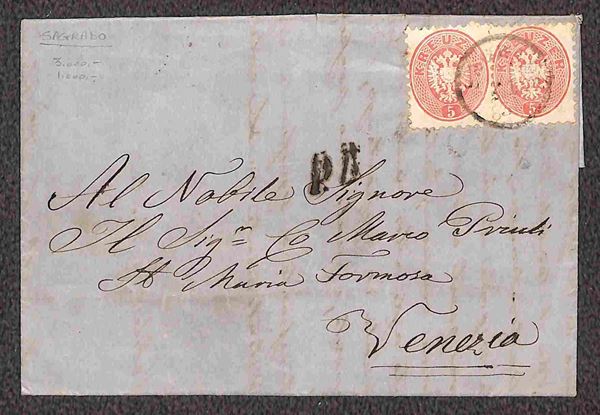 SAGRADO
3.000,-
1.000,-
KREUZER KREUZER
5 5
P.D.
Al Nobile Signore
Il Sigr Co Marco Priuli
Sta Maria Formosa
Venezia